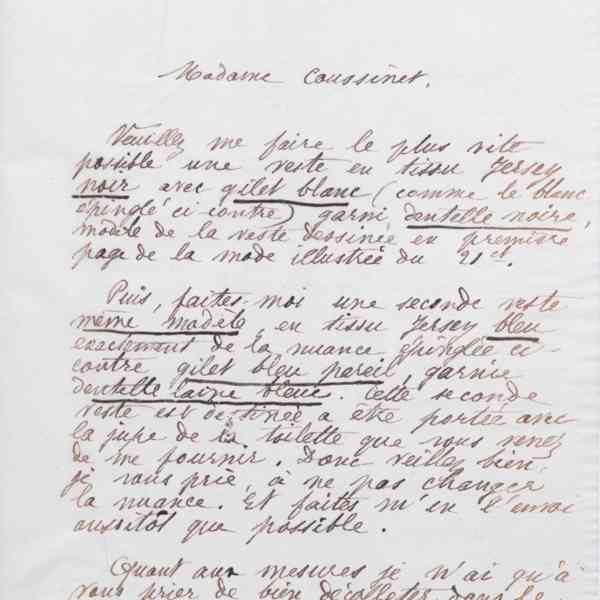 Madame Coussinet.
Veuillez me faire le plus vite
possible une veste en tissu Jersey
noir avec gilet blanc (comme le blanc
épinglé ci contre) garni dentelle noire,
modèle de la veste dessinée en première
page de la mode illustrée du 21 ct.
Puis, faites-moi une seconde veste
même modèle, en tissu Jersey bleu
exactement de la nuance épinglée ci-
contre gilet bleu pareil, garnie
dentelle laine bleue. Cette seconde
veste est destinée a être portée avec
la jupe de la toilette que vous venez
de me fournir. Donc veillez bien,
je vous prie, à ne pas changer
la nuance. Et faites m'en l'envoi
aussitôt que possible.
Quant aux mesures je n'ai qu'à
vous prier de bien décolleter dans le